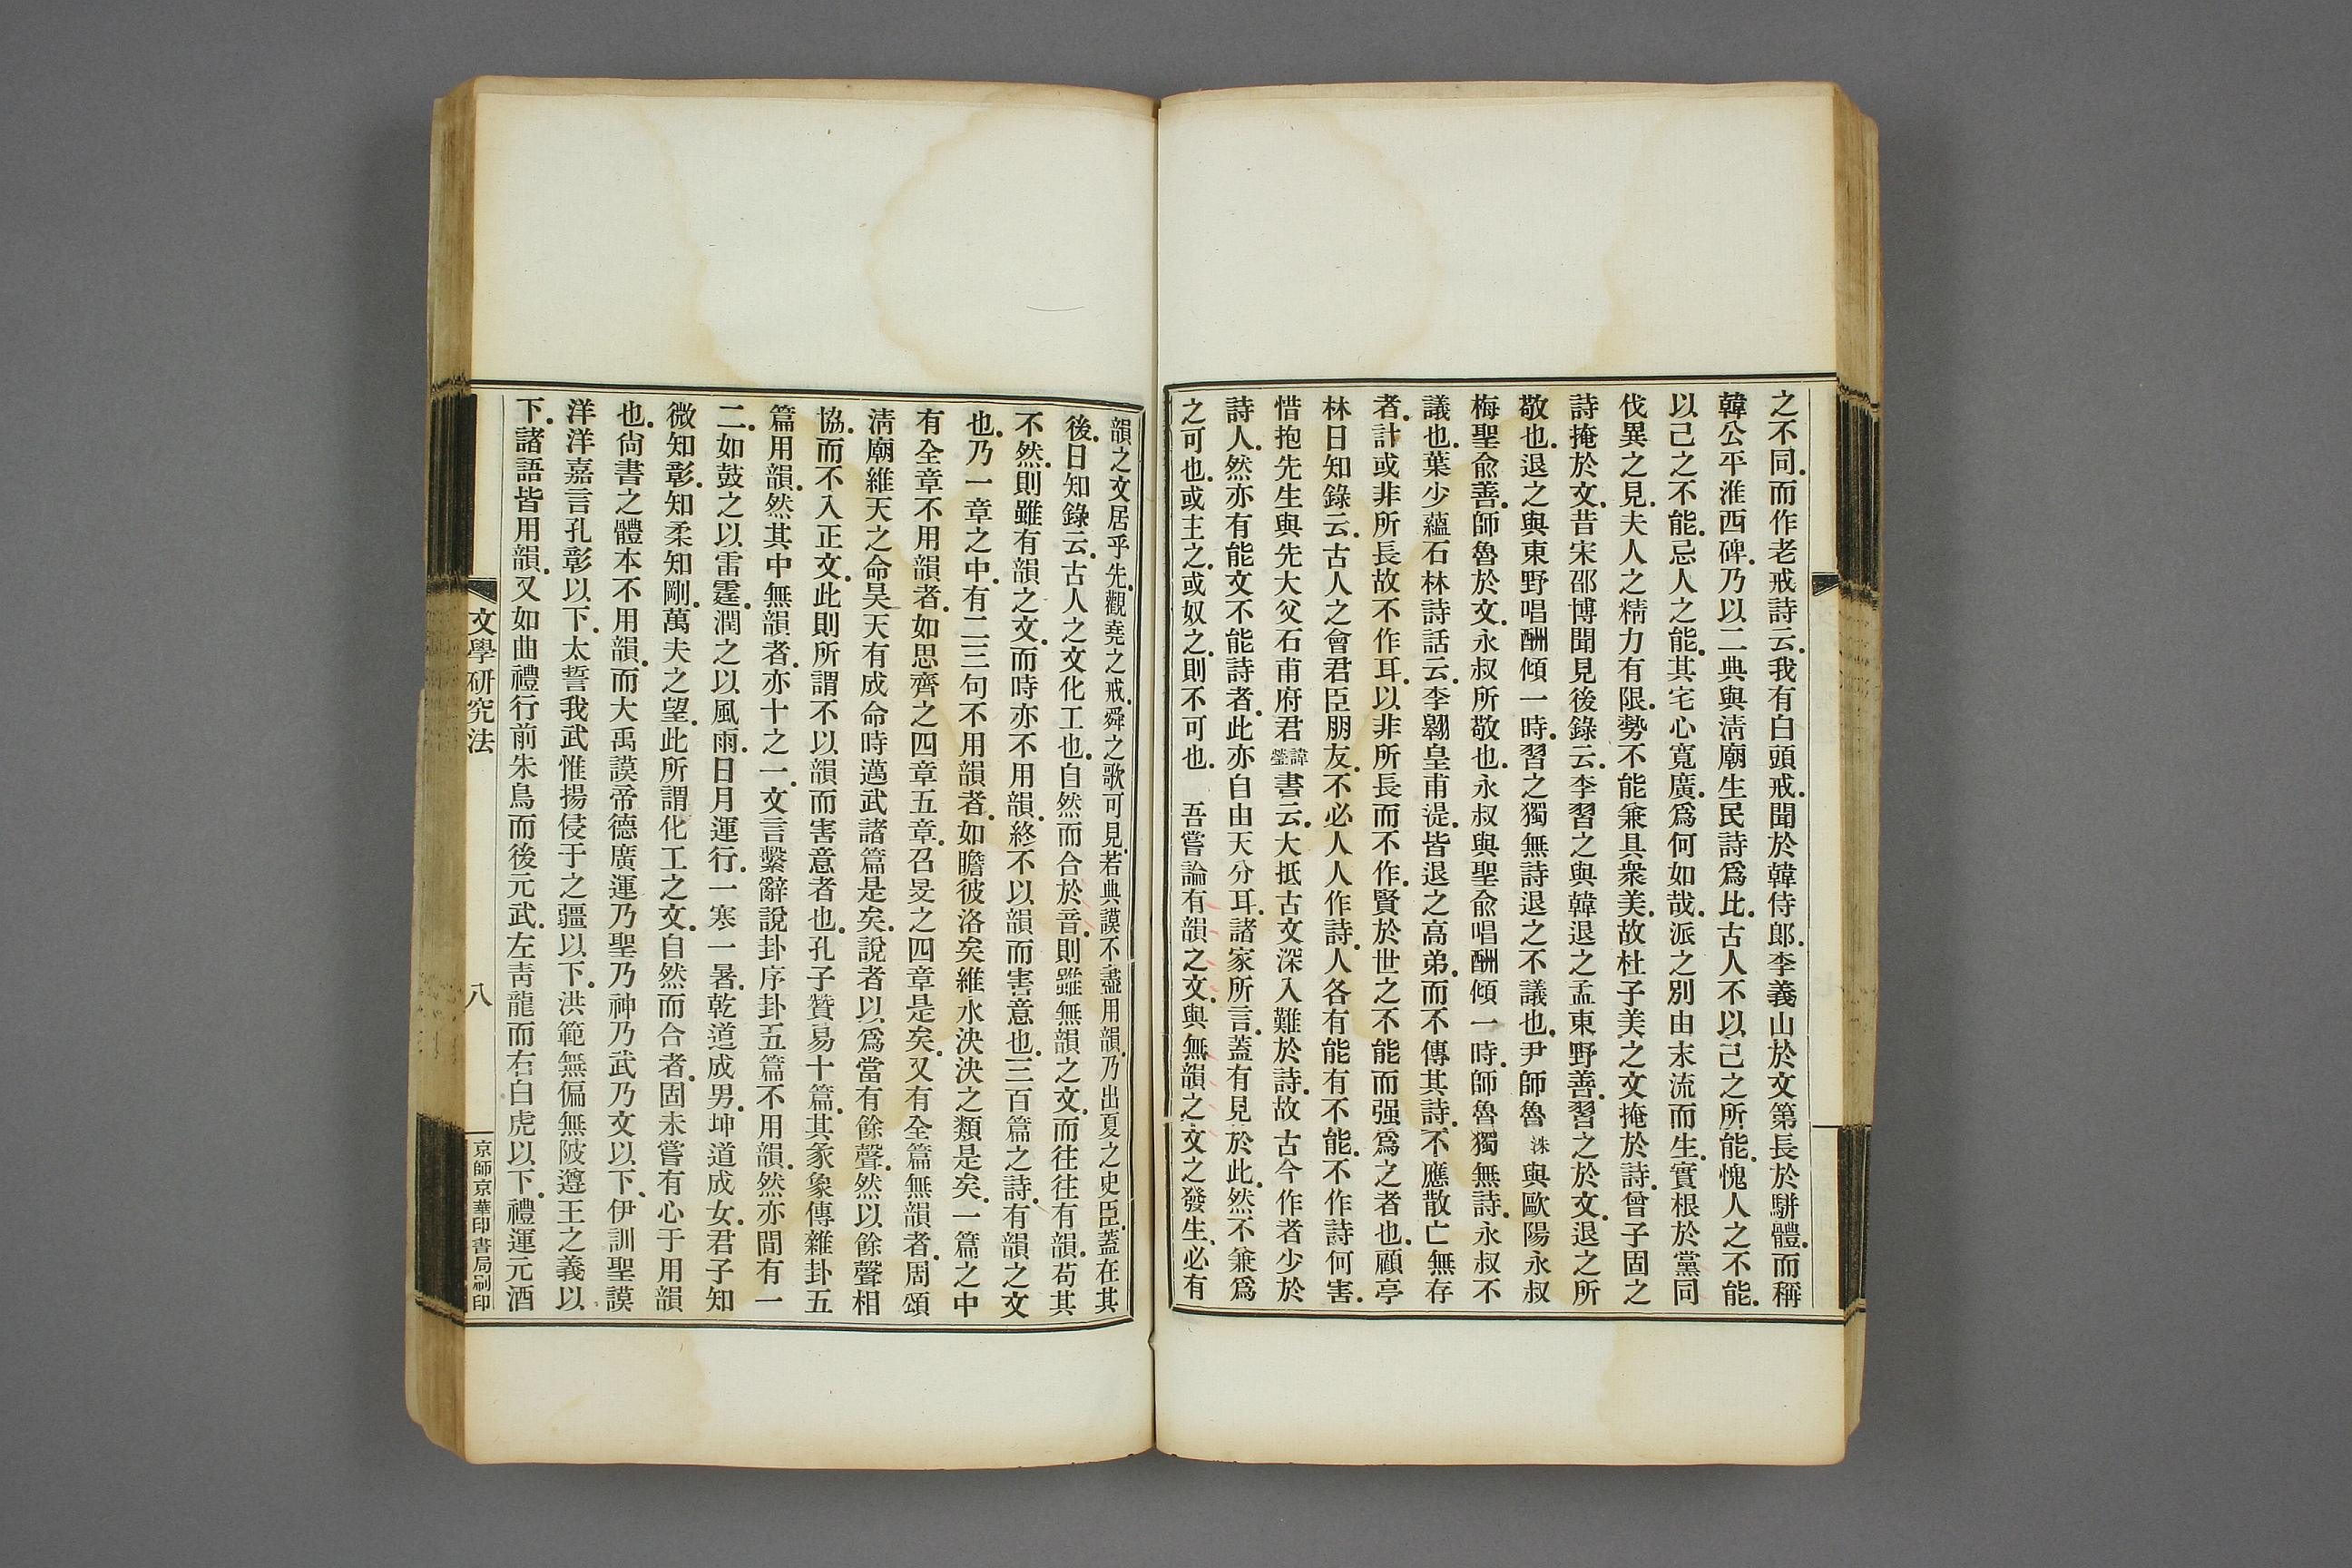 之不同.而作老戒詩云.我有白頭戒.聞於韓侍郎.李義山於文第長於駢體.而稱
韓公平淮西碑.乃以二典與淸廟生民詩爲比.古人不以己之所能.愧人之不能.
以己之不能.忌人之能.其宅心寬廣.爲何如哉.派之別由末流而生.實根於黨同
伐異之見.夫人之精力有限.勢不能兼具衆美.故杜子美之文掩於詩.曾子固之
詩掩於文.昔宋邵博聞見後錄云.李習之與韓退之孟東野善.習之於文.退之所
敬也.退之與東野唱酬傾一時.習之獨無詩.退之不議也.尹師魯洙與歐陽永叔
梅聖兪善.師魯於文.永叔所敬也.永叔與聖兪唱酬傾一時.師魯獨無詩.永叔不
議也.葉少蘊石林詩話云.李翶皇甫湜.皆退之高弟.而不傳其詩.不應散亡無存
者.計或非所長故不作耳.以非所長而不作.賢於世之不能而强爲之者也.顧亭
林日知錄云.古人之會君臣朋友.不必人人作詩.人各有能有不能.不作詩何害.
惜抱先生與先大父石甫府君諱瑩書云.大抵古文深入難於詩.故古今作者少於
詩人.然亦有能文不能詩者.此亦自由天分耳.諸家所言.蓋有見於此.然不兼爲
之可也.或主之.或奴之.則不可也. 吾嘗論有韻之文.與無韻之文之發生.必有
韻之文居乎先.觀堯之戒.舜之歌可見.若典謨不盡用韻.乃出夏之史臣.蓋在其
後.日知錄云.古人之文化工也.自然而合於音.則雖無韻之文.而往往有韻.苟其
不然.則雖有韻之文.而時亦不用韻.終不以韻而害意也.三百篇之詩.有韻之文
也.乃一章之中.有二三句不用韻者.如瞻彼洛矣維水泱泱之類是矣.一篇之中
有全章不用韻者.如思齊之四章五章.召旻之四章是矣.又有全篇無韻者.周頌
淸廟維天之命昊天有成命時邁武諸篇是矣.說者以爲當有餘聲.然以餘聲相
協.而不入正文.此則所謂不以韻而害意者也.孔子贊易十篇.其彖象傳雜卦五
篇用韻.然其中無韻者.亦十之一.文言繫辭說卦序卦五篇不用韻.然亦間有一
二.如鼓之以雷霆.潤之以風雨.日月運行.一寒一暑.乾道成男.坤道成女.君子知
微知彰.知柔知剛.萬夫之望.此所謂化工之文.自然而合者.固未嘗有心于用韻
也.尙書之體本不用韻.而大禹謨帝德廣運乃聖乃神乃武乃文以下.伊訓聖謨
洋洋嘉言孔彰以下.太誓我武惟揚侵于之疆以下.洪範無偏無陂遵王之義以
下.諸語皆用韻.又如曲禮行前朱鳥而後元武.左靑龍而右白虎以下.禮運元酒
文學研究法
八
京師京華印書局刷印